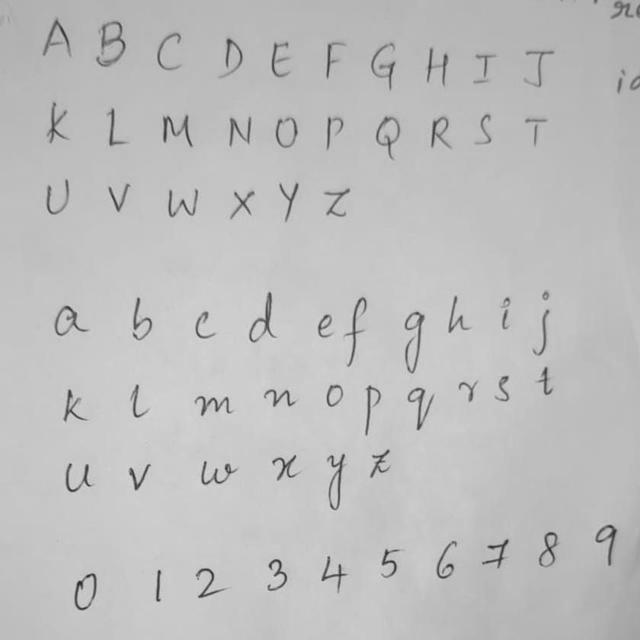 A B C D E F G H I J
K L M N O P Q R S T
U V W X Y Z
a b c d e f g h i j
k l m n o p q r s t
u v w x y z
0 1 2 3 4 5 6 7 8 9